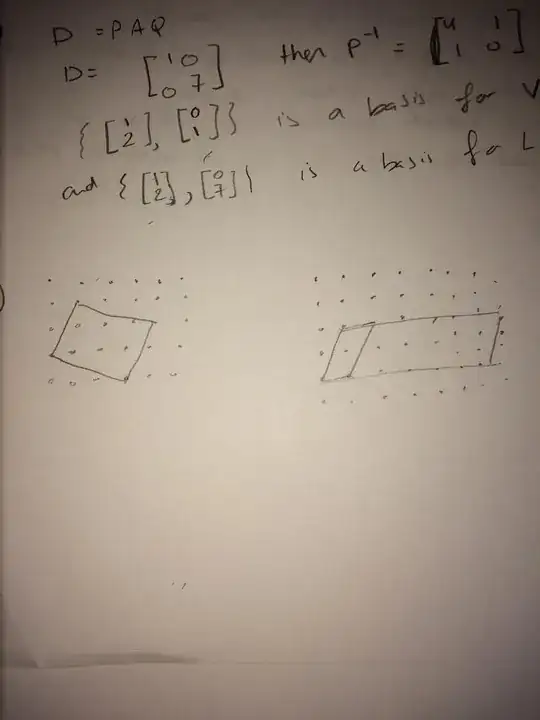 D = PAQ
D = [1 0 0 7] then P⁻¹ = [4 1 1 0]
{[1 2], [0 1]} is a basis for V
and {[1 2], [0 7]} is a basis for L
)